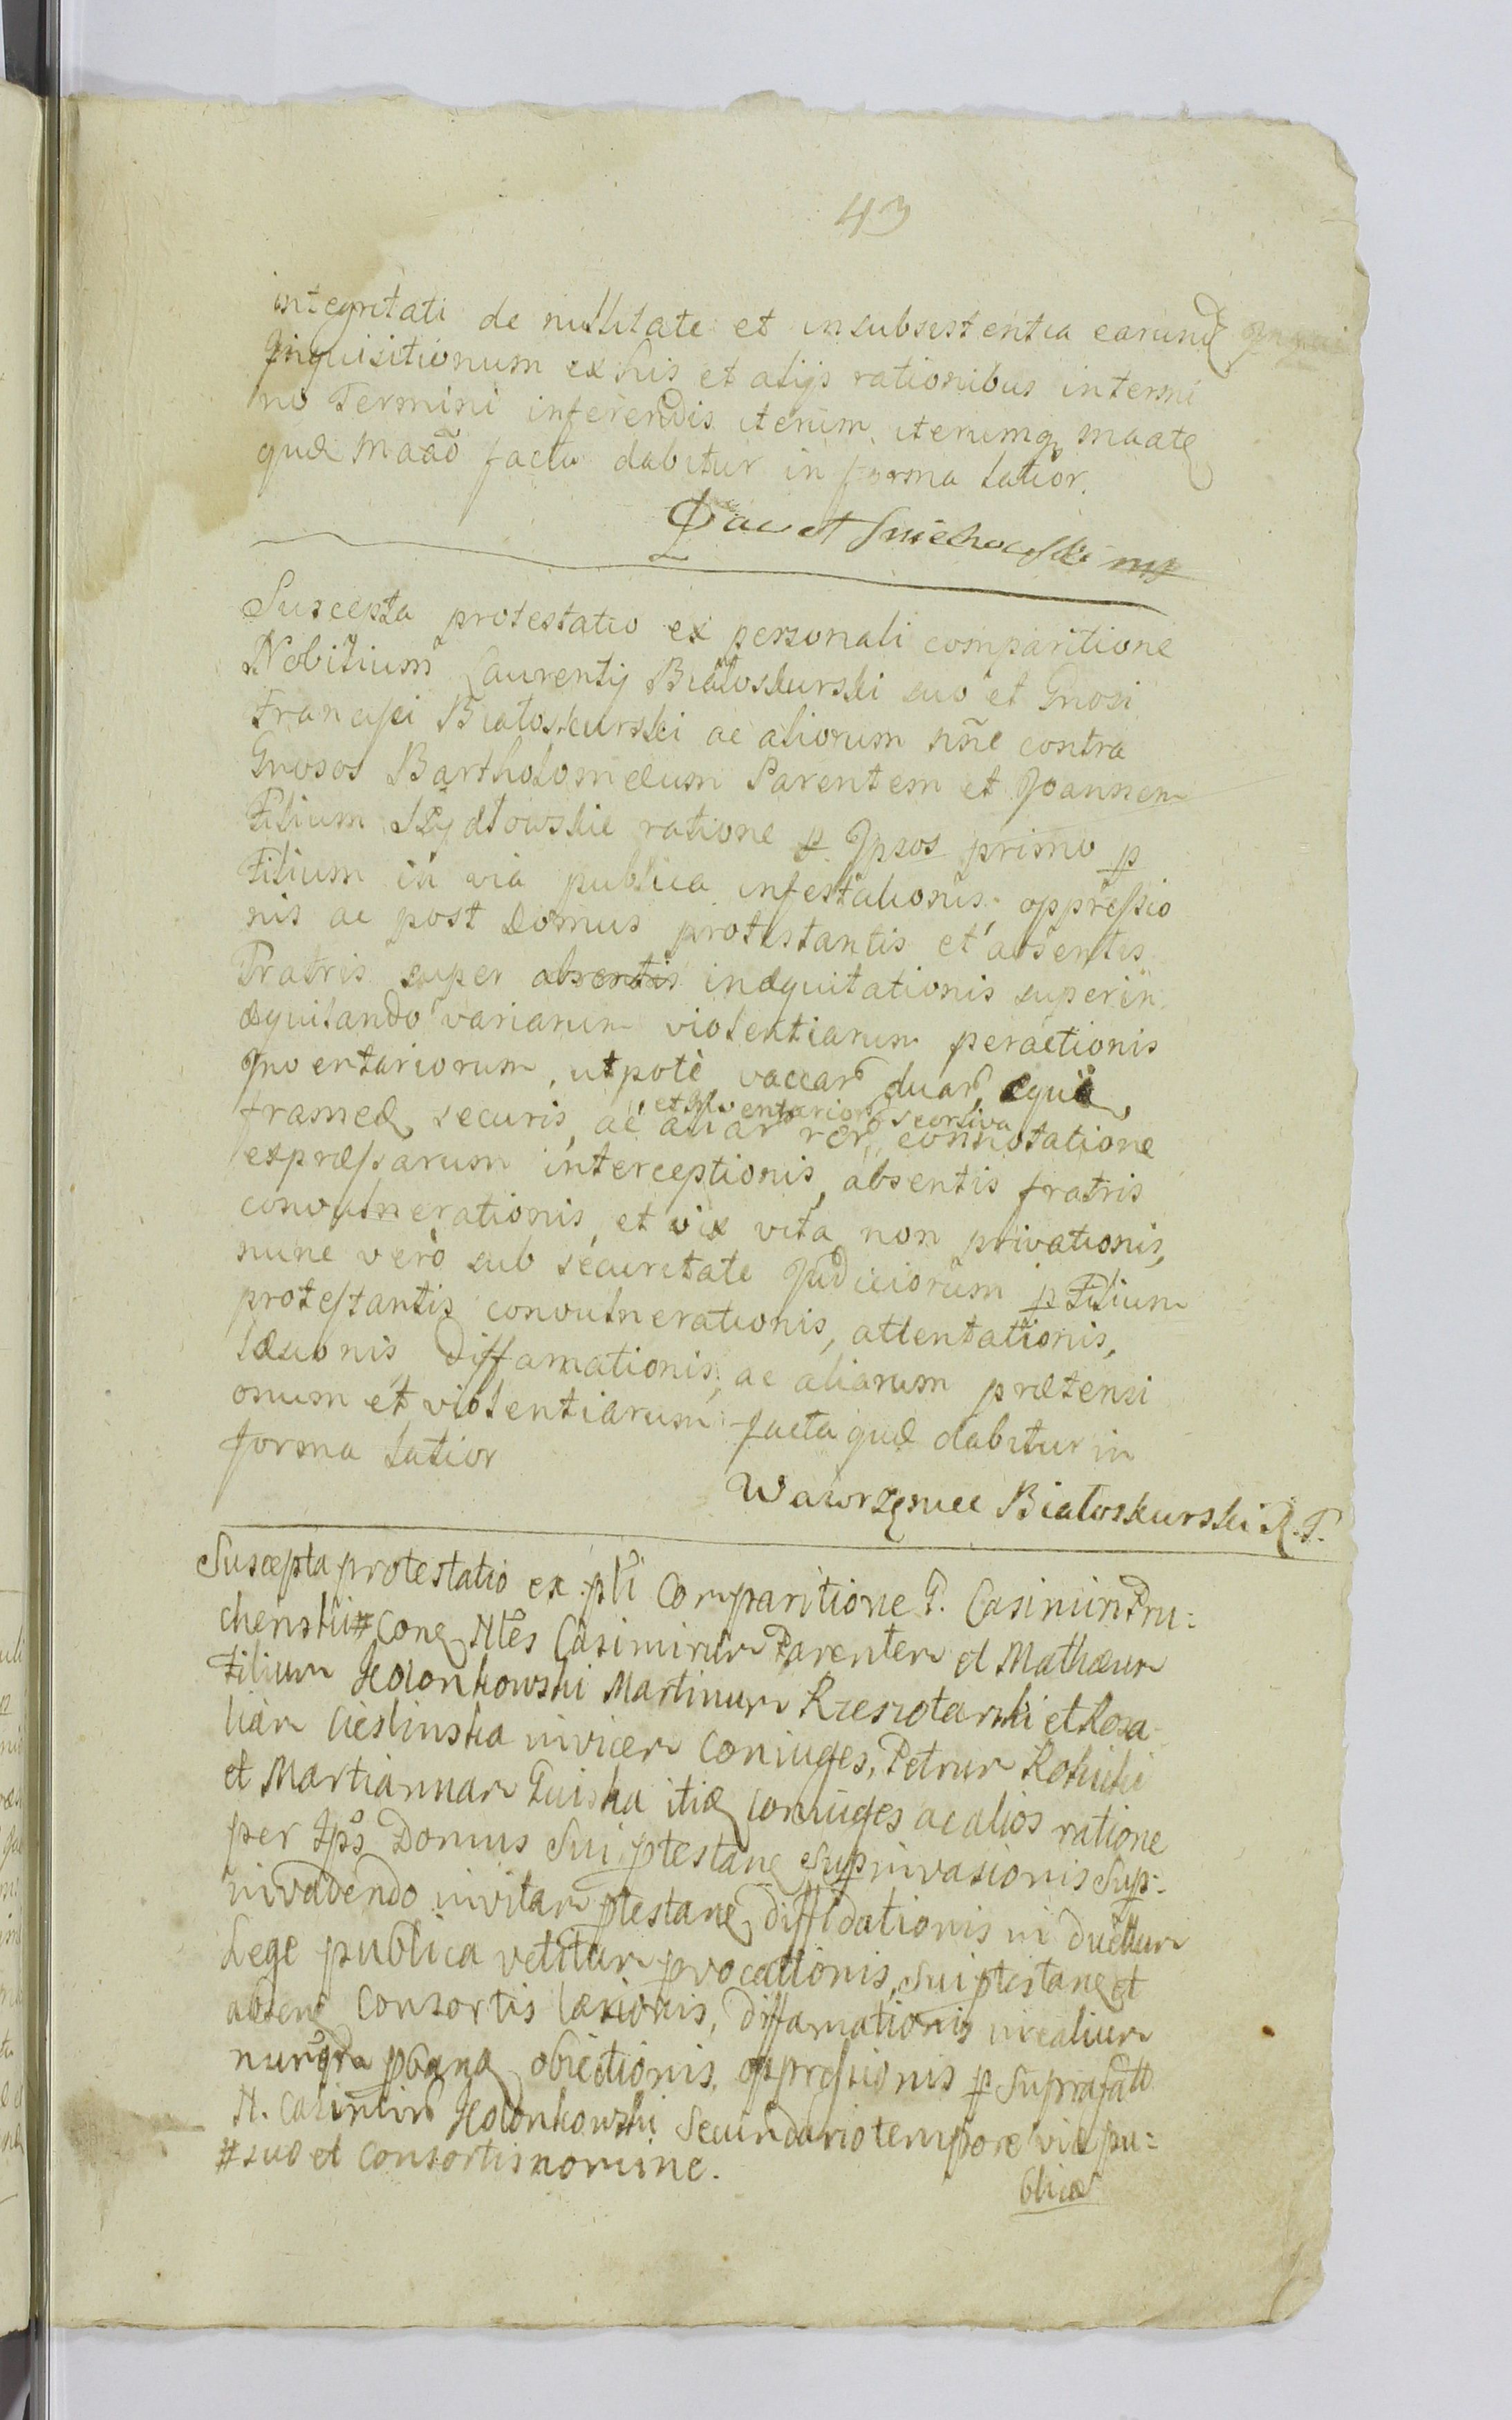 43
integritati de nullitate et insubsistentia earund
Inquisitionum ex his et alijs rationibus intermi
no Termini inferendis iterum, iterumq maate
quæ maaõ facta dabitur in forma latior.
Suscepta protestatio ex personali comparitione
Nobilium Laurentij Białoskurski suo et Gnosi
Francisci Białoskurski ac aliorum nñe contra
Gnosos Bartholomæum Parentem et Joannem
Filium Szydłowskie ratione p Ipsos primo p
Filium in via publica infestationis, oppressio
nis ac post Domus protestantis et absentis
Fratris super absentis inæquitationis superin
æquitando variarum violentiarum peractionis
Inventariorum, utpotè vaccar duar, equæ,
frameæ, securis, ac aliar rer, connotatione
et Inventarior seorsiva
expræssarum interceptionis, absentis fratris
convulnerationis, et vix vita non privationis,
nunc verò sub securitate Judiciorum p Filium
protestantis convulnerationis, attentationis,
læsionis, diffamationis, ac aliarum prætensi
onum et violentiarum facta quæ dabitur in
forma latior
Wawrzeniec Białoskurski R. P.
Suscepta protestatio ex pli Comparitione G. Casimiri Pru=
chenski # Cone Nles Casimirum Parentem et Mathæum
Filium Holonkowski Martinum Rzeszotarski et Rosa
liam Cieslinska invicem Coniuges, Petrum Rokicki
et Martiannam itiæ Coniuges ac alios ratione
per Ipsos Domus Sui ptestane Supinvasionis Sup=
invadendo invitam ptestane, diffidationis in duellum
Lege publica vetitum pvocationis, Sui ptestane et
absene Consortis læsionis, diffamationis
obiectionis, oppressionis p Suprafatt
N. Casimirum Holonkowski Secundario tempore viæ pu=
# suo et Consortis nomine.
blicæ